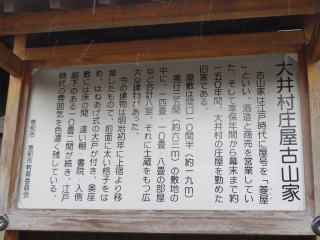 大井村庄屋古山家
古山家は江戸時代に屋号を「菱屋」といい、酒造と商売を営業していた。そして享保年間から幕末まで約一五〇年間、大井村の庄屋を勤めた旧家である。
屋敷は間口一〇間半(約一九m)奥行三五間(約六三m)の敷地の中に、一四畳、一〇畳、八畳の部屋など合計八室、それに土蔵をもつ広大な建物があった。
今の建物は明治初年に上宿より移築したもので、前面に太い格子をはめ、はねあげ式の大戸が付き、奥座敷には床の間、違い棚、書院、入側廊下のある一〇畳二間が続き、江戸時代の雰囲気を色濃く残している。
恵那市
恵那市教育委員会